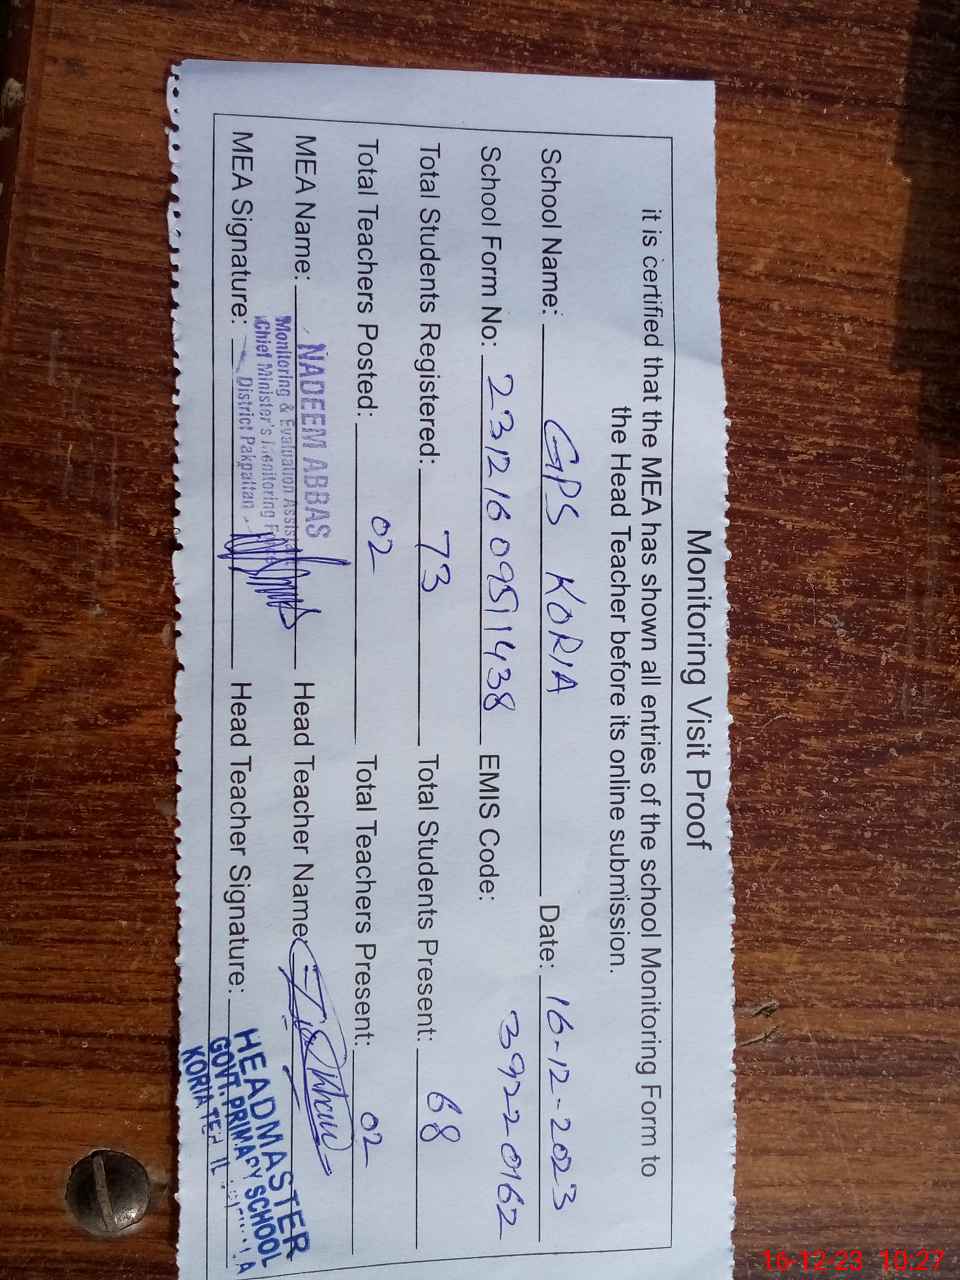 Monitoring Visit Proof
it is certified that the MEA has shown all entries of the school Monitoring Form to
the Head Teacher before its online submission.
School Name: GPS KORIA Date: 16-12-2023
School Form No: 23121609511438 EMIS Code: 39220162
Total Students Registered: 73 Total Students Present: 68
Total Teachers Posted: 02 Total Teachers Present: 02
MEA Name: NADEEM ABBAS Head Teacher Name:
Monitoring & Evaluation Assis
Chief Minister's Monitoring F
District Pakpattan
MEA Signature: Head Teacher Signature:
HEADMASTER
GOVT. PRIMARY SCHOOL
KORIA
16-12-23 10:27